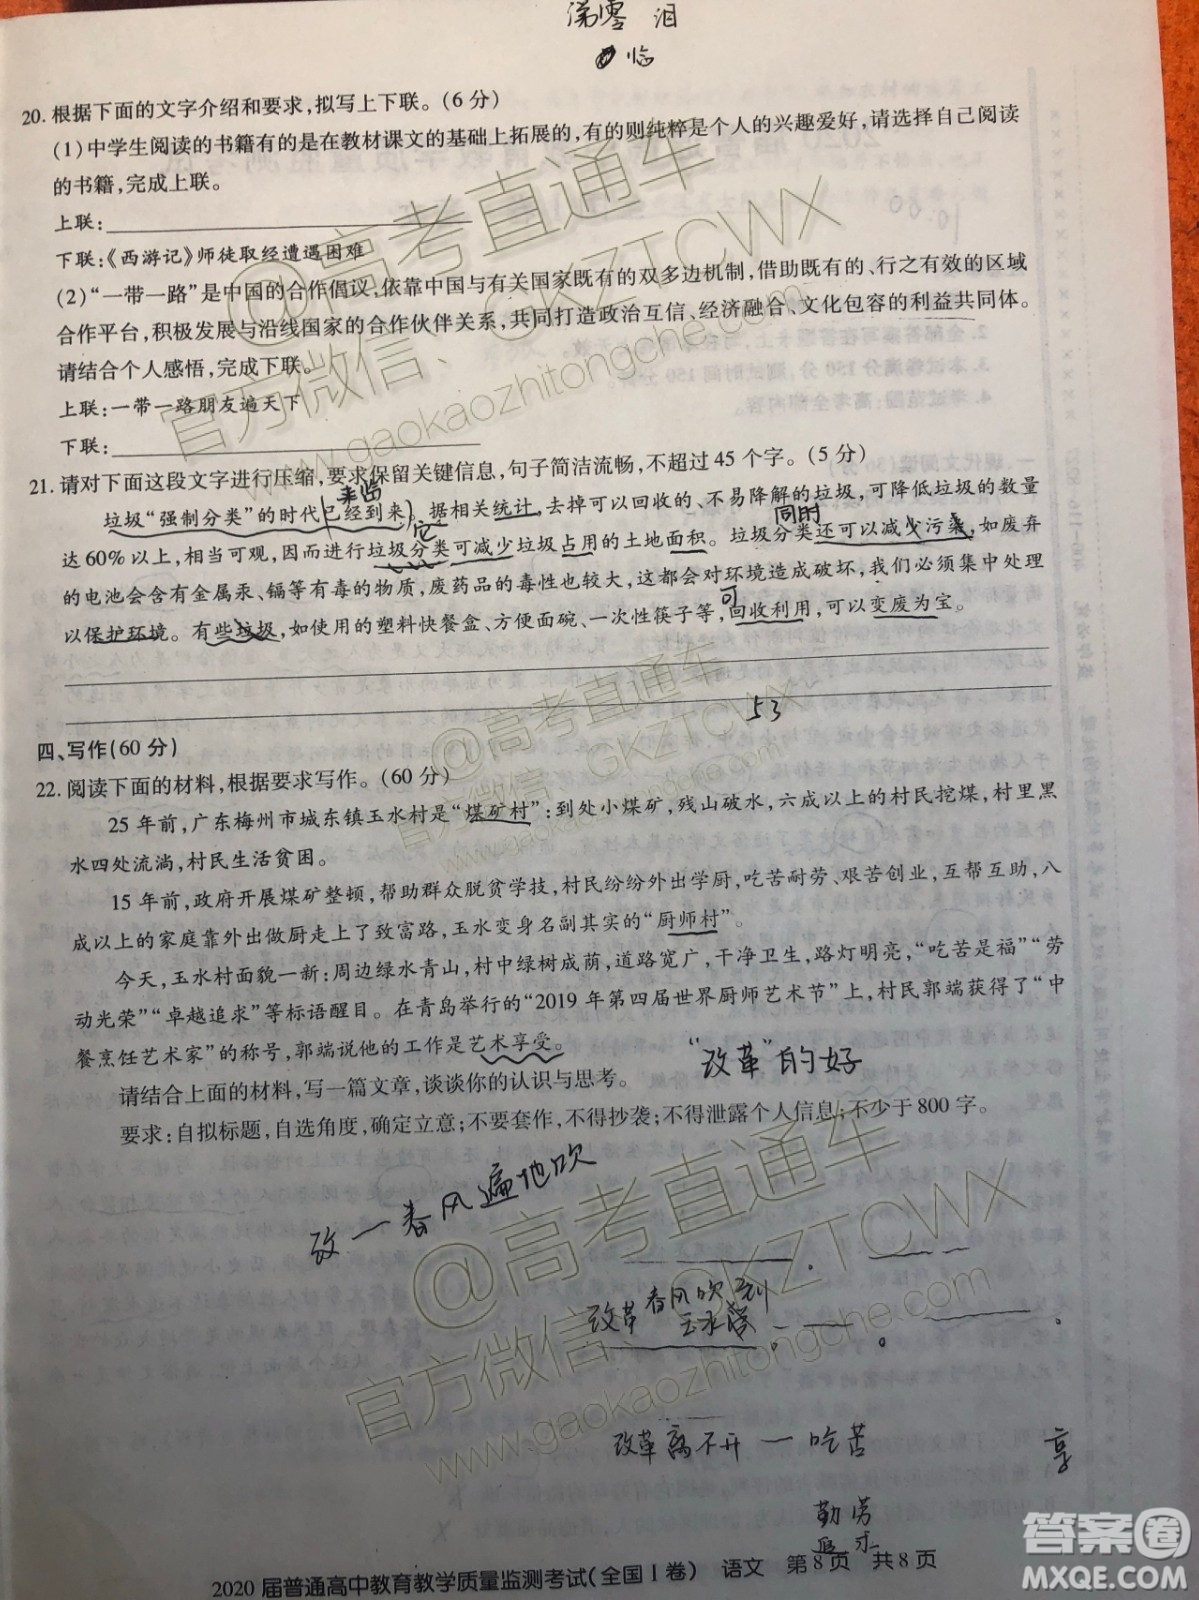 涕零 泪
临
20.根据下面的文字介绍和要求,拟写上下联。(6分)
(1)中学生阅读的书籍有的是在教材课文的基础上拓展的,有的则纯粹是个人的兴趣爱好,请选择自己阅读
的书籍,完成上联。
上联:
下联:《西游记》师徒取经遭遇困难
(2)“一带一路”是中国的合作倡议,依靠中国与有关国家既有的双多边机制,借助既有的、行之有效的区域
合作平台,积极发展与沿线国家的合作伙伴关系,共同打造政治互信、经济融合、文化包容的利益共同体。
请结合个人感悟,完成下联。
上联:一带一路朋友遍天下
下联:
21.请对下面这段文字进行压缩,要求保留关键信息,句子简洁流畅,不超过45个字。(5分)
来临
垃圾“强制分类”的时代已经到来,据相关统计,去掉可以回收的、不易降解的垃圾,可降低垃圾的数量
它 同时
达60%以上,相当可观,因而进行垃圾分类可减少垃圾占用的土地面积。垃圾分类还可以减少污染,如废弃
的电池会含有金属汞、镉等有毒的物质,废药品的毒性也较大,这都会对环境造成破坏,我们必须集中处理
可
以保护环境。有些垃圾,如使用的塑料快餐盒、方便面碗、一次性筷子等,回收利用,可以变废为宝。
53
四、写作(60分)
22.阅读下面的材料,根据要求写作。(60分)
25年前,广东梅州市城东镇玉水村是“煤矿村”:到处小煤矿,残山破水,六成以上的村民挖煤,村里黑
水四处流淌,村民生活贫困。
15年前,政府开展煤矿整顿,帮助群众脱贫学技,村民纷纷外出学厨,吃苦耐劳、艰苦创业,互帮互助,八
成以上的家庭靠外出做厨走上了致富路,玉水变身名副其实的“厨师村”。
今天,玉水村面貌一新:周边绿水青山,村中绿树成荫,道路宽广,干净卫生,路灯明亮,“吃苦是福”“劳
动光荣”“卓越追求”等标语醒目。在青岛举行的“2019年第四届世界厨师艺术节”上,村民郭端获得了“中
餐烹饪艺术家”的称号,郭端说他的工作是艺术享受。
“改革”的好
请结合上面的材料,写一篇文章,谈谈你的认识与思考。
要求:自拟标题,自选角度,确定立意;不要套作,不得抄袭;不得泄露个人信息;不少于800字。
改一春风遍地吹
改革春风吹到
改革离不开一吃苦
享
勤劳
2020届普通高中教育教学质量监测考试(全国Ⅰ卷) 语文 第8页 共8页
@高考直通车
官方微信:GKZTCWX
www.gaokaozhitongche.com
@高考直通车
官方微信:GKZTCWX
www.gaokaozhitongche.com
@高考直通车
官方微信:GKZTCWX
www.gaokaozhitongche.com
答案圈
MXQE.COM